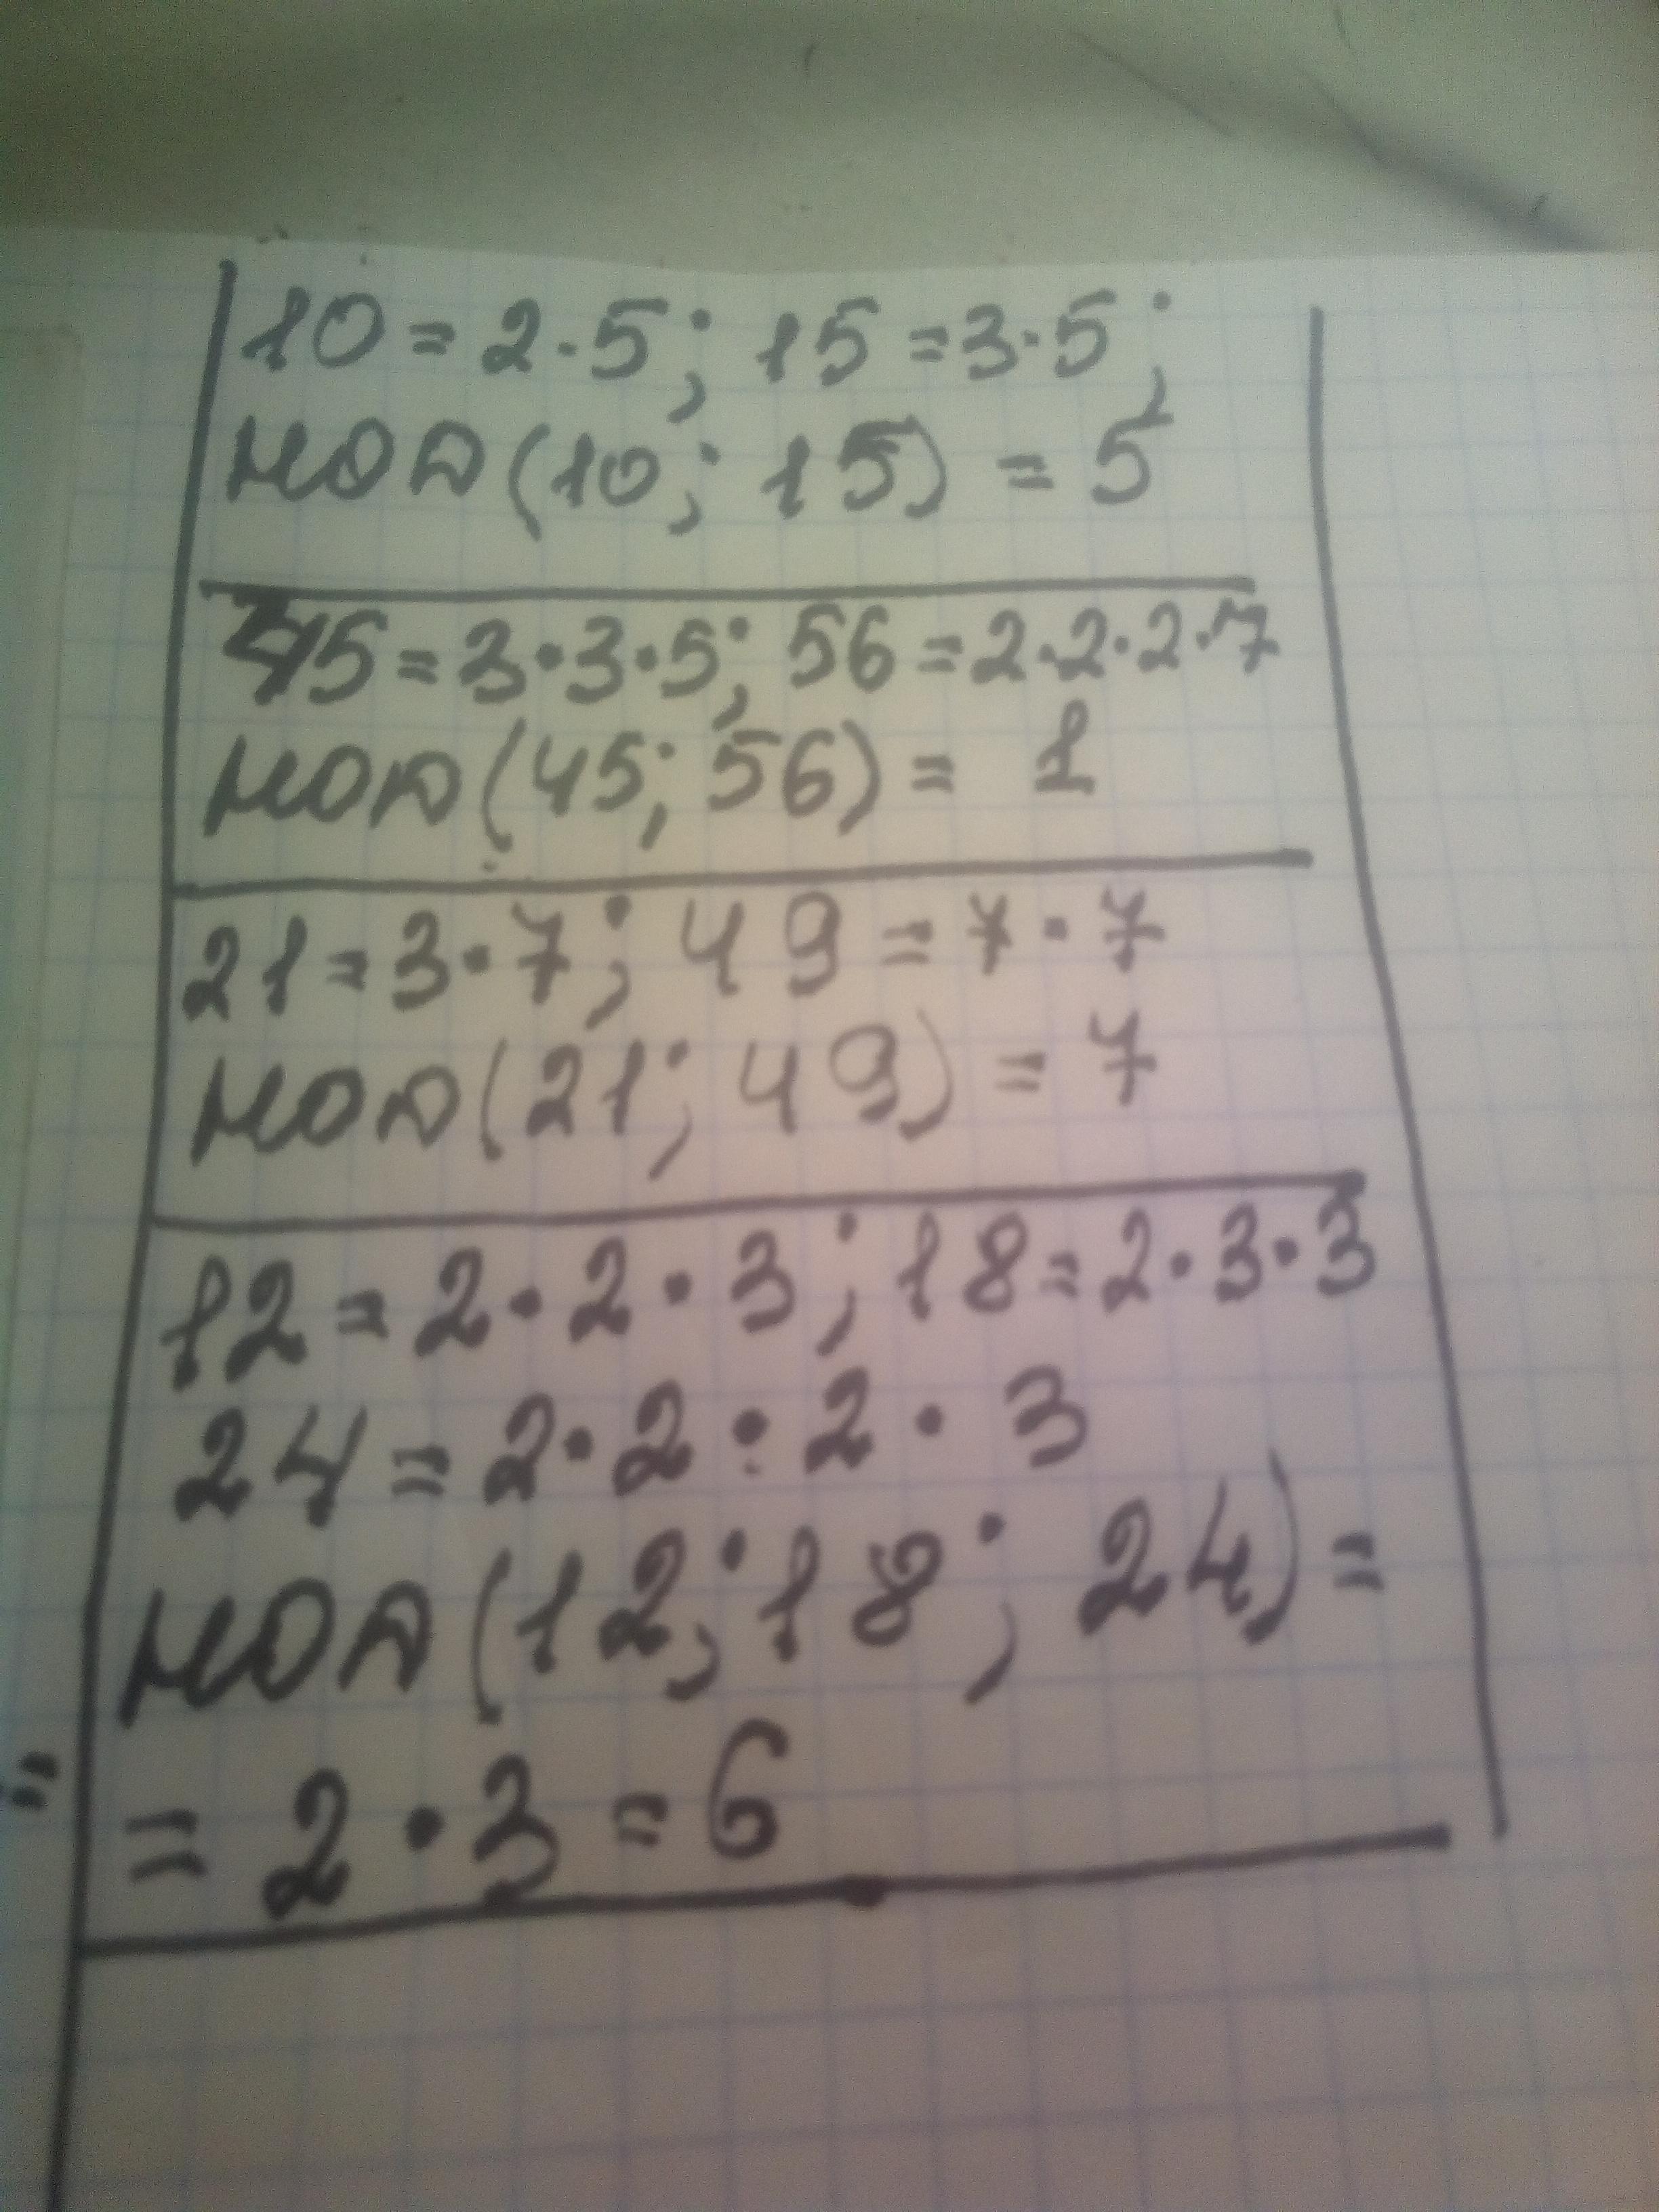 10 = 2 · 5; 15 = 3 · 5;
НОД(10; 15) = 5
45 = 3 · 3 · 5; 56 = 2 · 2 · 2 · 7
НОД(45; 56) = 1
21 = 3 · 7; 49 = 7 · 7
НОД(21; 49) = 7
12 = 2 · 2 · 3; 18 = 2 · 3 · 3
24 = 2 · 2 · 2 · 3
НОД(12; 18; 24) =
= 2 · 3 = 6
=